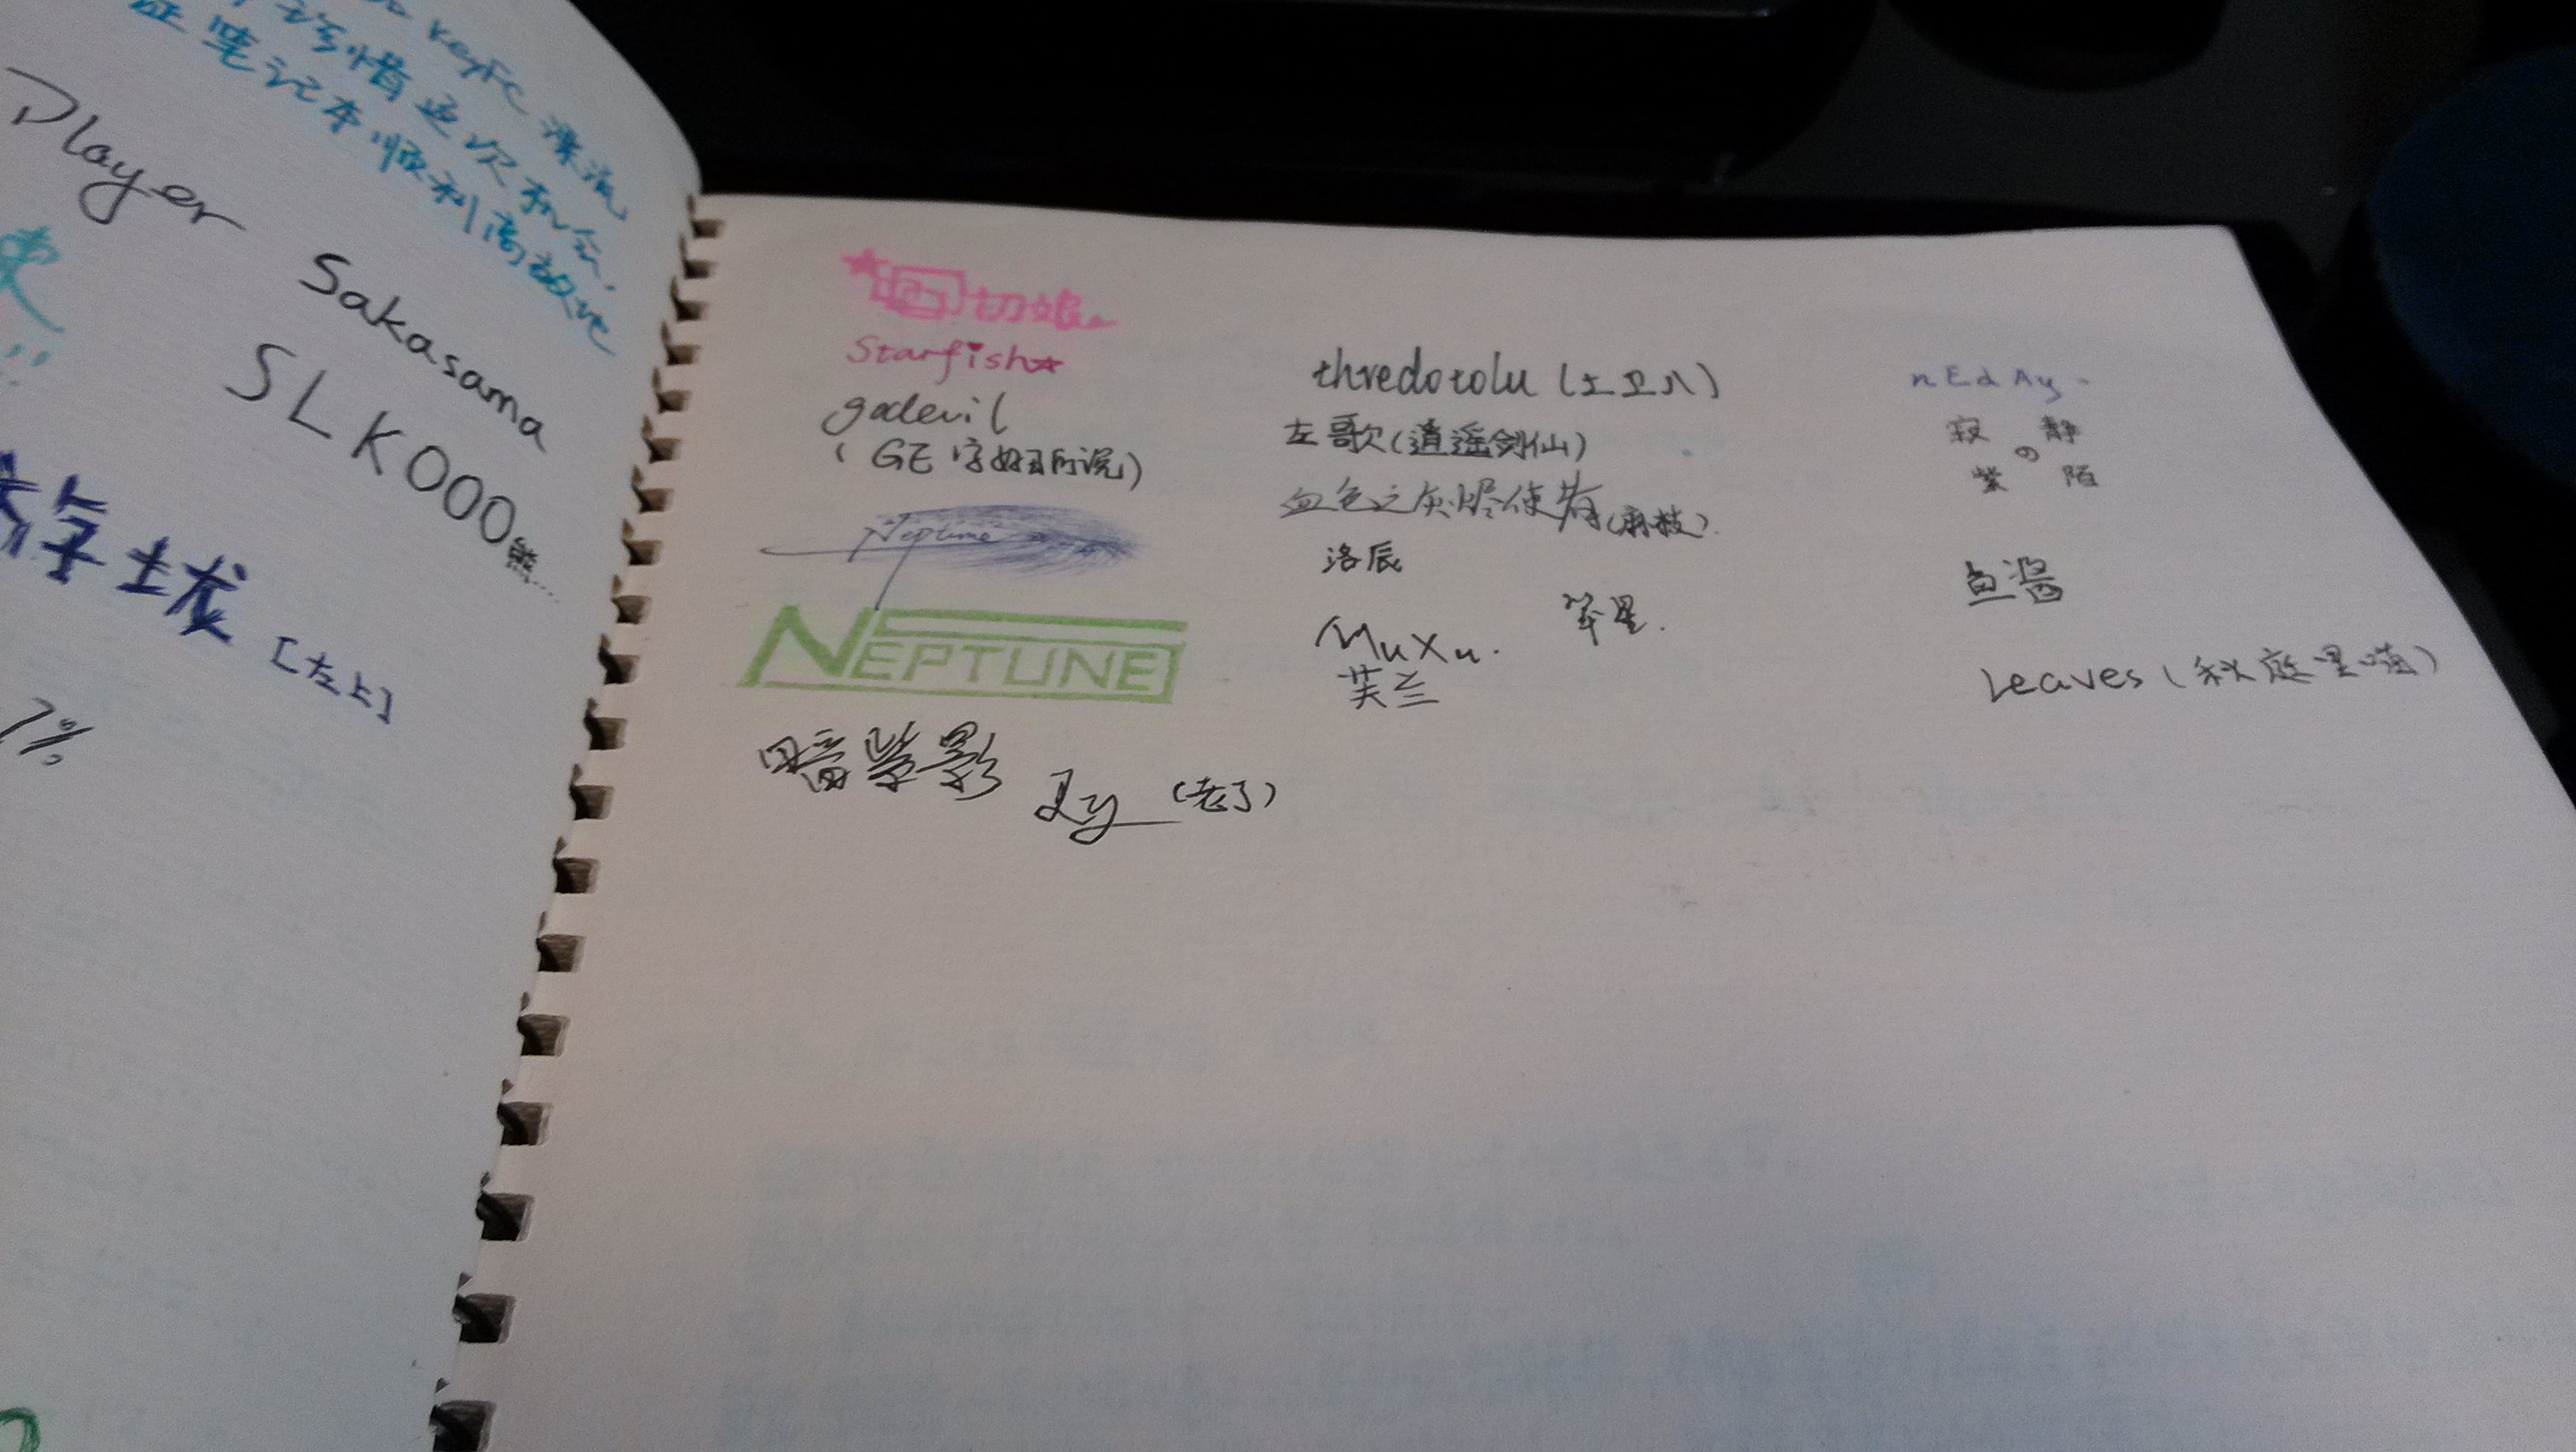 KeyFc 漂流
珍惜这次机会.
笔记本顺利高放ve
Player
Sakasama
SLK000熊...
[左上]
7%
切娘
Starfish☆
godevil
(GE 字如所说)
Neptune
NEPTUNE
暗紫影
(老了)
thredotolu (土卫八)
左歌(逍遥剑仙)
血色之灰烬使者(麻枝).
洛辰
MuXu.
笨星.
芙兰
nEdAy
寂静
の
紫陌
鱼酱
Leaves (秋庭里哉)